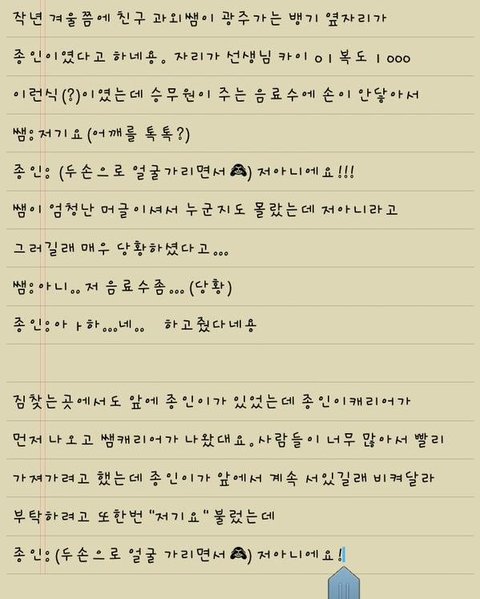 작년 겨울쯤에 친구 과외쌤이 광주가는 뱅기 옆자리가
종인이였다고 하네용. 자리가 선생님 카이 ㅇㅣ복도ㅣㅇㅇㅇ
이런식(?)이였는데 승무원이 주는 음료수에 손이 안닿아서
쌤:저기요(어깨를 톡톡?)
종인: (두손으로 얼굴가리면서🙈) 저아니에요!!!
쌤이 엄청난 머글이셔서 누군지도 몰랐는데 저아니라고
그러길래 매우 당황하셨다고...
쌤:아니.. 저 음료수좀... (당황)
종인:아ㅏ하...네.. 하고줬다네용
짐찾는곳에서도 앞에 종인이가 있었는데 종인이캐리어가
먼저 나오고 쌤캐리어가 나왔대요.사람들이 너무 많아서 빨리
가져가려고 했는데 종인이가 앞에서 계속 서있길래 비켜달라
부탁하려고 또한번 "저기요" 불렀는데
종인:(두손으로 얼굴 가리면서🙈) 저아니에요!